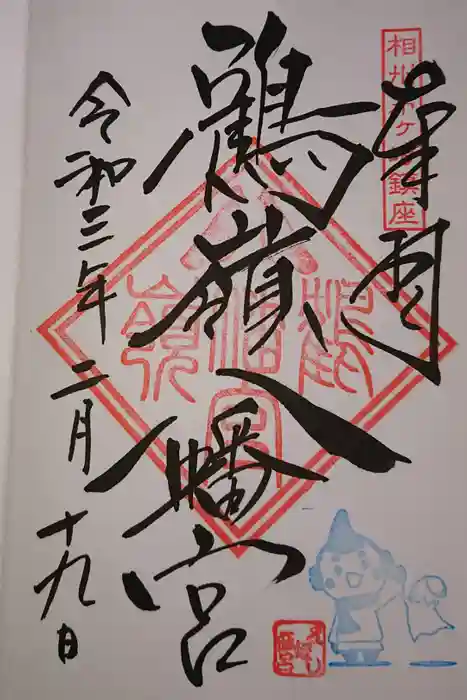 奉拝
相州茅ヶ崎鎮座
鶴嶺八幡宮
令和三年二月十九日